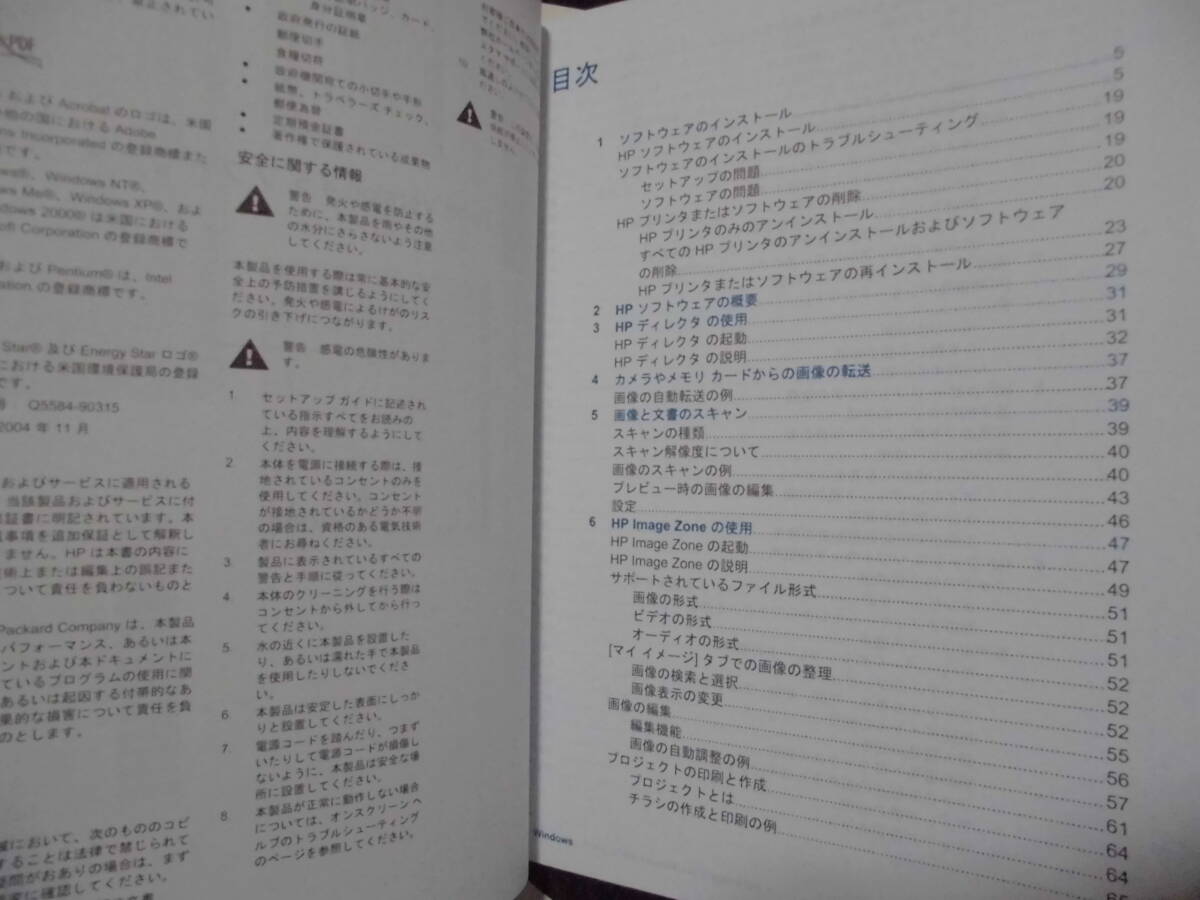 およびAcrobat のロゴは、米国
他の国における Adobe
ns Incorporated の登録商標また
です。
ws®、Windows NT®、
ws Me®、Windows XP®、およ
dows 2000® は米国における
oft Corporation の登録商標で
および Pentium® は、Intel
ration の登録商標です。
Star® 及び Energy Star ロゴ®
における米国環境保護局の登録
です。
Q5584-90315
2004 年 11 月
およびサービスに適用される
当該製品およびサービスに付
証書に明記されています。本
事項を追加保証として解釈し
ません。HP は本書の内容に
術上または編集上の誤記また
ついて責任を負わないものと
Packard Company は、本製品
パフォーマンス、あるいは本
ントおよび本ドキュメントに
ているプログラムの使用に関
あるいは起因する付帯的なあ
果的な損害について責任を負
のとします。
において、次のもののコピ
することは法律で禁じられて
疑問がおありの場合は、まず
に確認してください。
身分証明章
政府発行の証紙
郵便切手
食糧切符
政府機関宛ての小切手や手形
紙幣、トラベラーズ チェック、
郵便為替
定期預金証書
著作権で保護されている成果物
安全に関する情報
警告 発火や感電を防止する
ために、本製品を雨やその他
の水分にさらさないよう注意
してください。
本製品を使用する際は常に基本的な安
全上の予防措置を講じるようにしてく
ださい。発火や感電によるけがのリス
クの引き下げにつながります。
警告 感電の危険性がありま
す。
1. セットアップ ガイドに記述され
ている指示すべてをお読みの
上、内容を理解するようにして
ください。
2. 本体を電源に接続する際は、接
地されているコンセントのみを
使用してください。コンセント
が接地されているかどうか不明
の場合は、資格のある電気技術
者にお尋ねください。
3. 製品に表示されているすべての
警告と手順に従ってください。
4. 本体のクリーニングを行う際は
コンセントから外してから行っ
てください。
5. 水の近くに本製品を設置した
り、あるいは濡れた手で本製品
を使用したりしないでくださ
い。
6. 本製品は安定した表面にしっか
りと設置してください。
7. 電源コードを踏んだり、つまず
いたりして電源コードが損傷し
ないように、本製品は安全な場
所に設置してください。
8. 本製品が正常に動作しない場合
については、オンスクリーン ヘ
ルプのトラブルシューティング
のページを参照してください。
目次
1 ソフトウェアのインストール 5
HP ソフトウェアのインストール 5
ソフトウェアのインストールのトラブルシューティング 19
セットアップの問題 19
ソフトウェアの問題 19
HP プリンタまたはソフトウェアの削除 20
HP プリンタのみのアンインストール 20
すべての HP プリンタのアンインストールおよびソフトウェア
の削除 23
HP プリンタまたはソフトウェアの再インストール 27
2 HP ソフトウェアの概要 29
3 HP ディレクタ の使用 31
HP ディレクタ の起動 31
HP ディレクタ の説明 32
4 カメラやメモリ カードからの画像の転送 37
画像の自動転送の例 37
5 画像と文書のスキャン 39
スキャンの種類 39
スキャン解像度について 40
画像のスキャンの例 40
プレビュー時の画像の編集 43
設定 46
6 HP Image Zone の使用 47
HP Image Zone の起動 47
HP Image Zone の説明 49
サポートされているファイル形式 51
画像の形式 51
ビデオの形式 51
オーディオの形式 52
[マイ イメージ] タブでの画像の整理 52
画像の検索と選択 52
画像表示の変更 55
画像の編集 56
編集機能 57
画像の自動調整の例 61
プロジェクトの印刷と作成 64
プロジェクトとは 64
チラシの作成と印刷の例 65
Windows